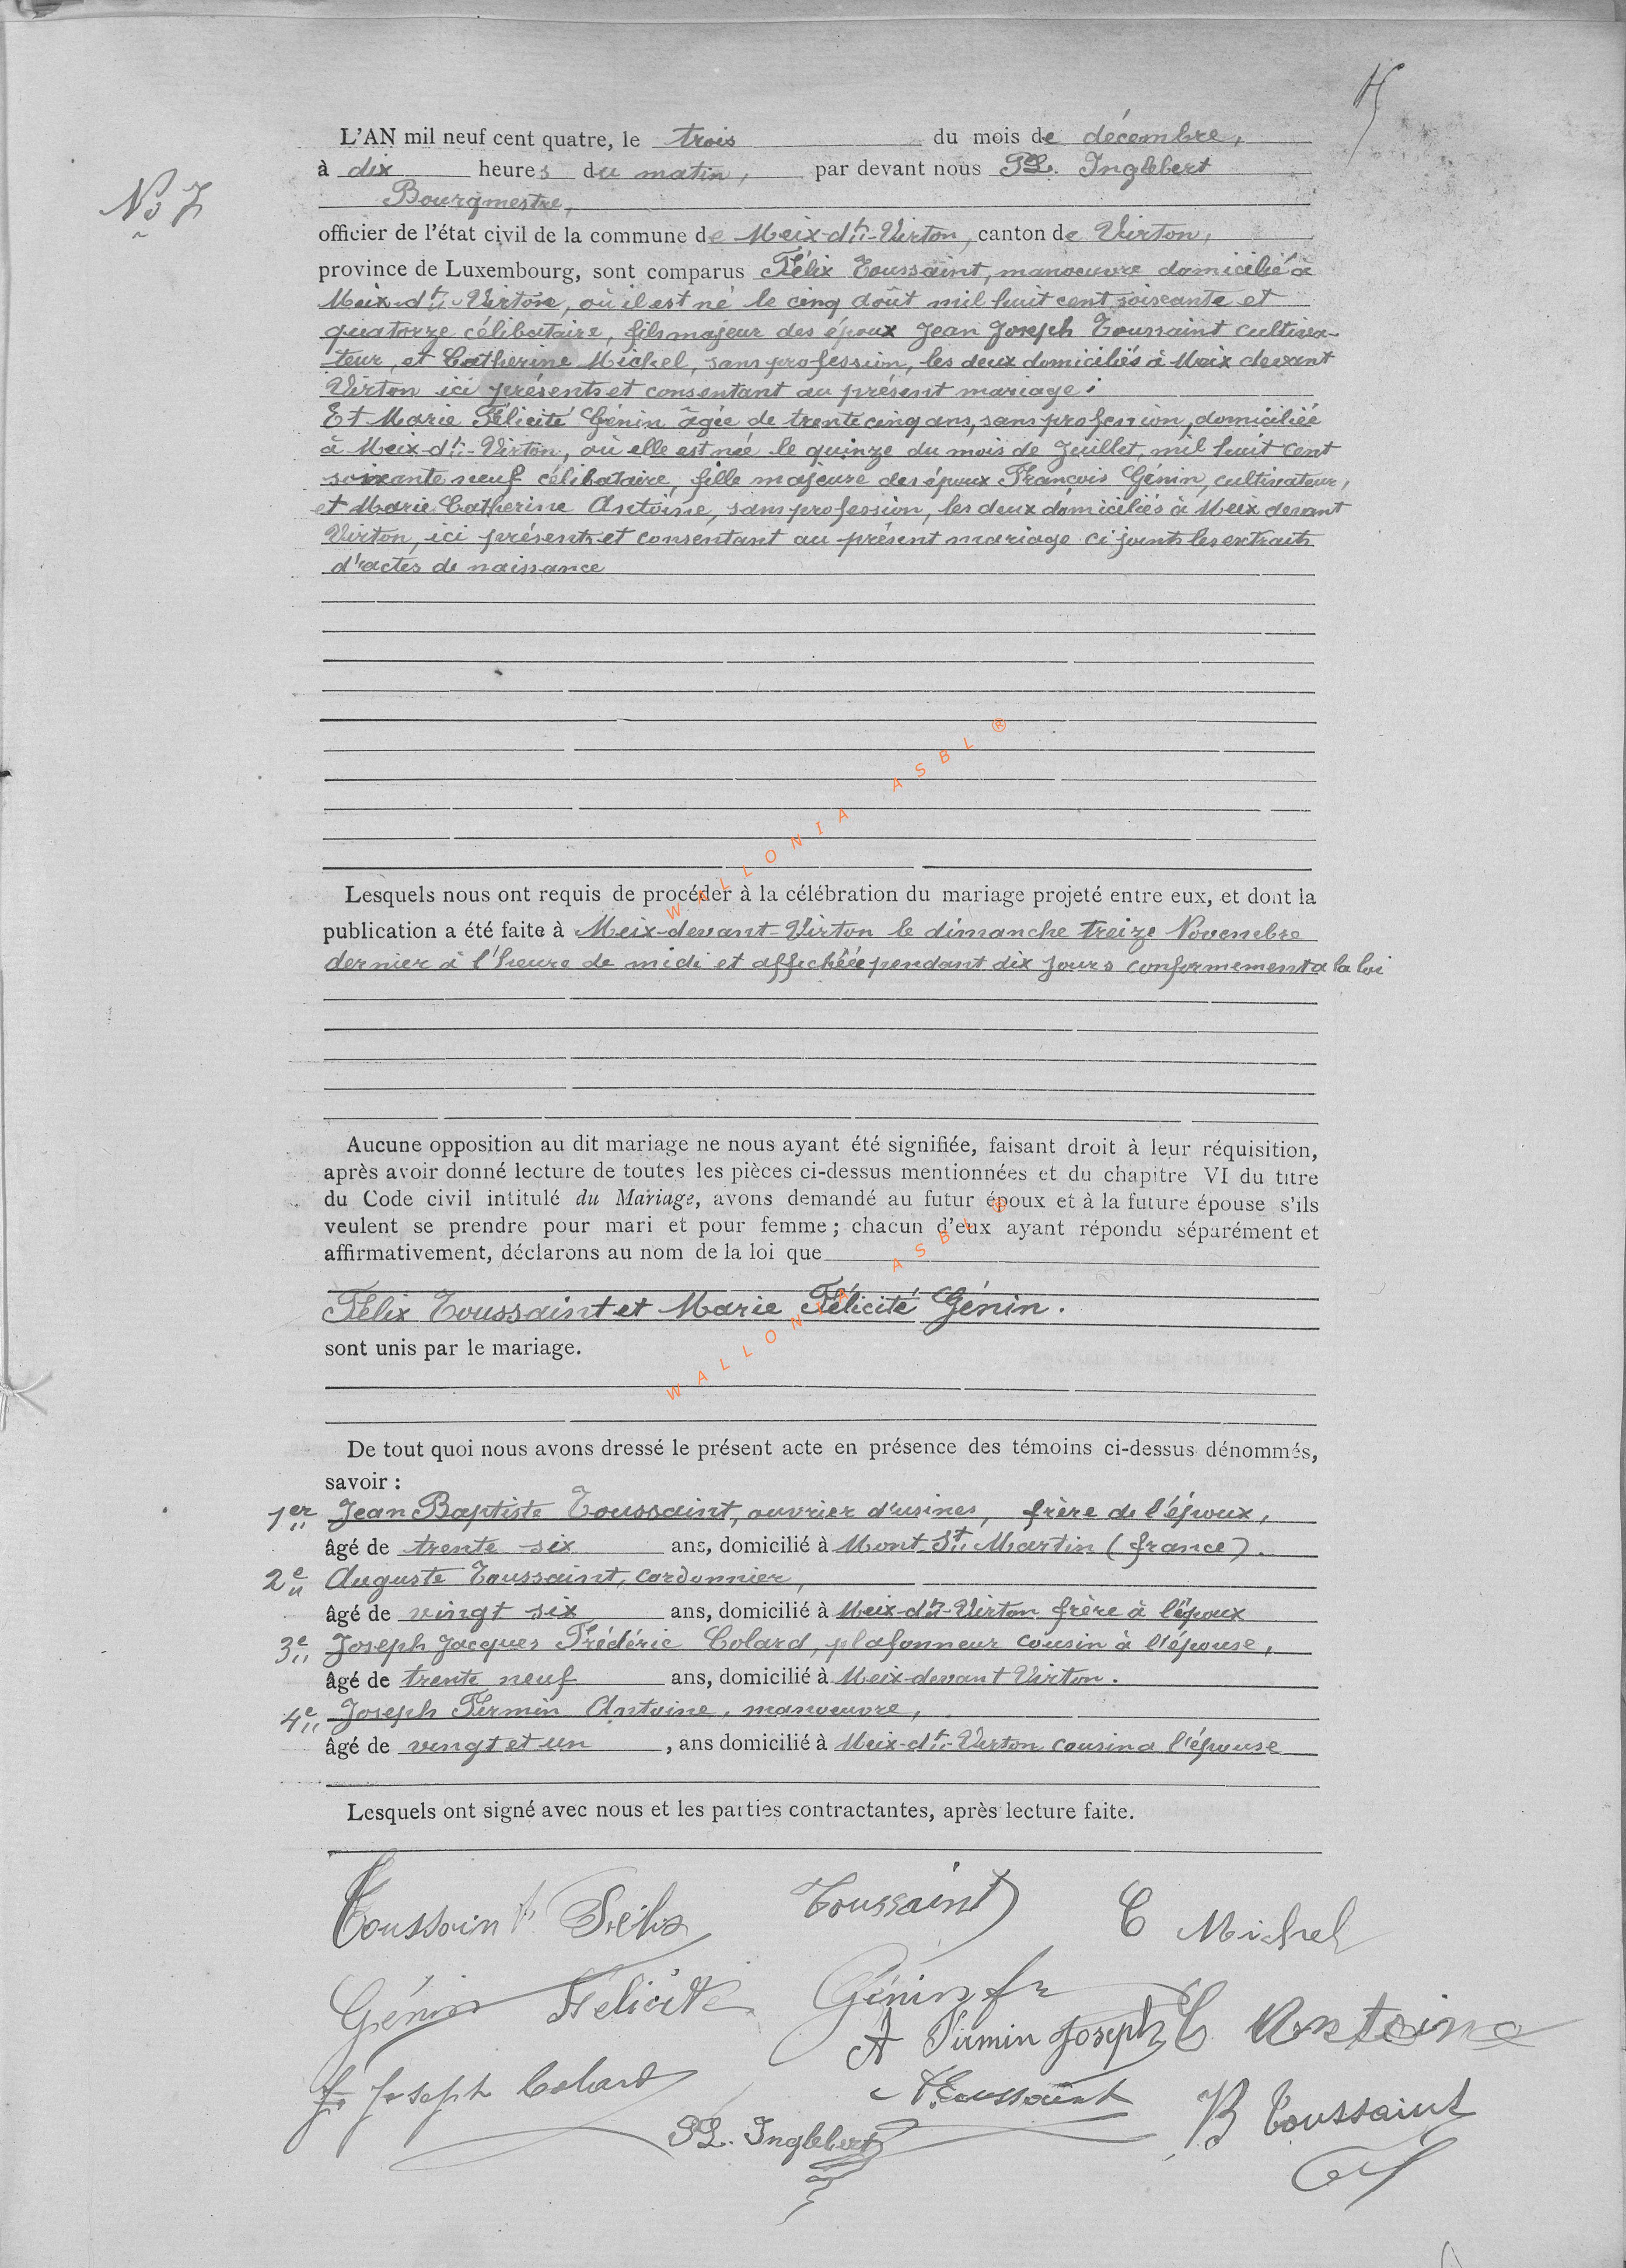 L'AN mil neuf cent quatre, le trois du mois de décembre,
No 7
à dix heures du matin, par devant nous P.L. Inglebert
Bourgmestre,
officier de l'état civil de la commune de Meix-dt-Virton, canton de Virton,
province de Luxembourg, sont comparus Félix Toussaint, manoeuvre domicilié à
Meix-dt-Virton, où il est né le cinq août mil huit cent soixante et
quatorze célibataire, fils majeur des époux Jean Joseph Toussaint cultiva-
teur, et Catherine Michel, sans profession, les deux domiciliés à Meix devant
Virton ici présents et consentant au présent mariage;
Et Marie Félicité Génin âgée de trente cinq ans, sans profession, domiciliée
à Meix-dt-Virton, où elle est née le quinze du mois de Juillet, mil huit cent
soixante neuf célibataire, fille majeure des époux François Génin, cultivateur,
et Marie Catherine Antoine, sans profession, les deux domiciliés à Meix devant
Virton, ici présents et consentant au présent mariage ci joints les extraits
d'actes de naissance
Lesquels nous ont requis de procéder à la célébration du mariage projeté entre eux, et dont la
publication a été faite à Meix-devant-Virton le dimanche treize Novembre
dernier à l'heure de midi et affichée pendant dix jours conformement a la loi
WALLONIA ASBL ®
Aucune opposition au dit mariage ne nous ayant été signifiée, faisant droit à leur réquisition,
après avoir donné lecture de toutes les pièces ci-dessus mentionnées et du chapitre VI du titre
du Code civil intitulé du Mariage, avons demandé au futur époux et à la future épouse s'ils
veulent se prendre pour mari et pour femme ; chacun d'eux ayant répondu séparément et
affirmativement, déclarons au nom de la loi que
Félix Toussaint et Marie Félicité Génin.
sont unis par le mariage.
WALLONIA ASBL ®
De tout quoi nous avons dressé le présent acte en présence des témoins ci-dessus dénommés,
savoir :
1er Jean Baptiste Toussaint, ouvrier d'usines, frère de l'époux,
âgé de trente six ans, domicilié à Mont St Martin (france).
2e Auguste Toussaint, cordonnier,
âgé de vingt six ans, domicilié à Meix-dt-Virton frère à l'époux
3e Joseph Jacques Frédéric Colard, plafonneur cousin à l'épouse,
âgé de trente neuf ans, domicilié à Meix-devant Virton.
4e Joseph Firmin Antoine, manoeuvre,
âgé de vingt et un , ans domicilié à Meix-dt-Virton cousin a l'épouse
Lesquels ont signé avec nous et les parties contractantes, après lecture faite.
Toussaint Félix Toussaint C Michel
Génin Félicité Génin fr
A Firmin Joseph C Antoine
Joseph Colard A Toussaint
P.L. Inglebert B Toussaint